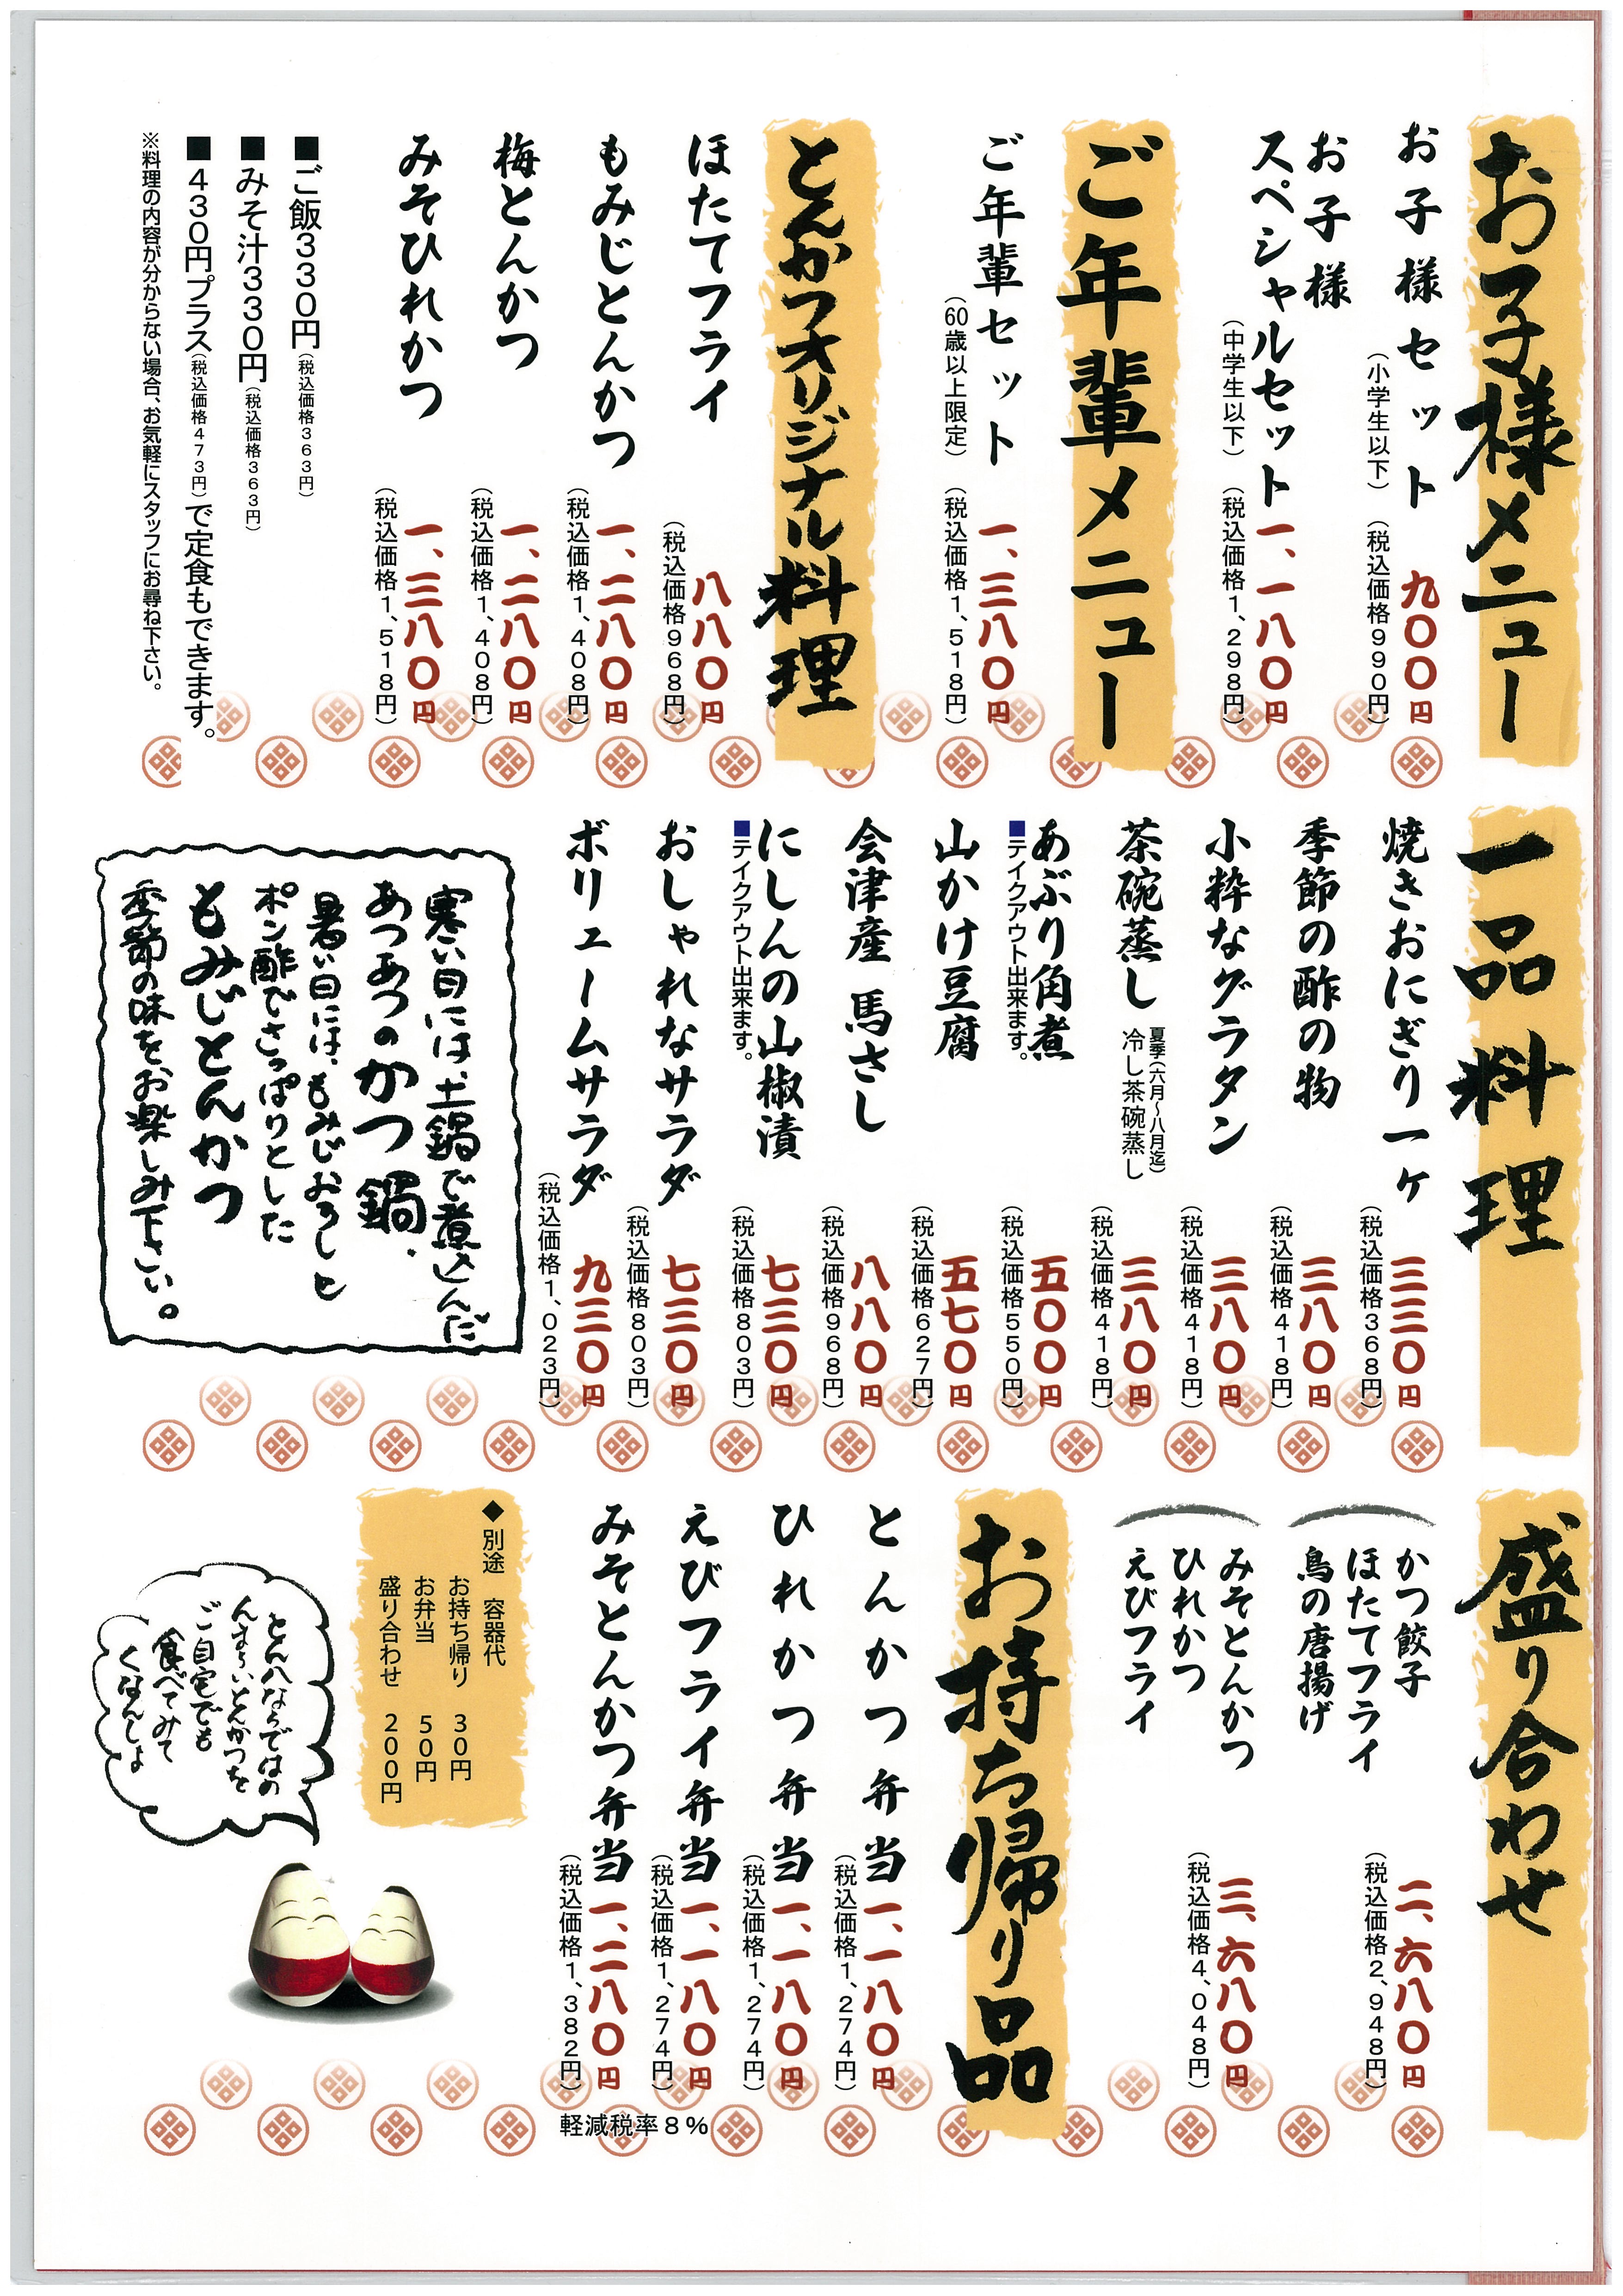 お子様メニュー
お子様セット
(小学生以下)
九〇〇円
(税込価格990円)
お子様
スペシャルセット
(中学生以下)
一、一八〇円
(税込価格1,298円)
ご年輩メニュー
ご年輩セット
(60歳以上限定)
一、三八〇円
(税込価格1,518円)
とんかつオリジナル料理
ほたてフライ
八八〇円
(税込価格968円)
もみじとんかつ
一、二八〇円
(税込価格1,408円)
梅とんかつ
一、二八〇円
(税込価格1,408円)
みそひれかつ
一、三八〇円
(税込価格1,518円)
■ご飯330円(税込価格363円)
■みそ汁330円(税込価格363円)
■430円プラス(税込価格473円)で定食もできます。
※料理の内容が分からない場合、お気軽にスタッフにお尋ね下さい。
一品料理
焼きおにぎり一ヶ
三三〇円
(税込価格368円)
季節の酢の物
三八〇円
(税込価格418円)
小粋なグラタン
三八〇円
(税込価格418円)
茶碗蒸し
夏季(六月〜八月迄)
冷し茶碗蒸し
三八〇円
(税込価格418円)
あぶり角煮
■テイクアウト出来ます。
五〇〇円
(税込価格550円)
山かけ豆腐
五七〇円
(税込価格627円)
会津産 馬さし
八八〇円
(税込価格968円)
にしんの山椒漬
■テイクアウト出来ます。
七三〇円
(税込価格803円)
おしゃれなサラダ
七三〇円
(税込価格803円)
ボリュームサラダ
九三〇円
(税込価格1,023円)
寒い日には、土鍋で煮込んだ
あつあつのかつ鍋、
暑い日には、もみじおろしと
ポン酢でさっぱりとした
もみじとんかつ
季節の味をお楽しみ下さい。
盛り合わせ
かつ餃子
ほたてフライ
鳥の唐揚げ
二、六八〇円
(税込価格2,948円)
みそとんかつ
ひれかつ
えびフライ
三、六八〇円
(税込価格4,048円)
お持ち帰り品
とんかつ弁当
一、一八〇円
(税込価格1,274円)
ひれかつ弁当
一、一八〇円
(税込価格1,274円)
えびフライ弁当
一、一八〇円
(税込価格1,274円)
みそとんかつ弁当
一、二八〇円
(税込価格1,382円)
軽減税率8%
◆別途 容器代
お持ち帰り 30円
お弁当 50円
盛り合わせ 200円
とん八ならではの
んまぁいとんかつを
ご自宅でも
食べてみて
くなんしょ